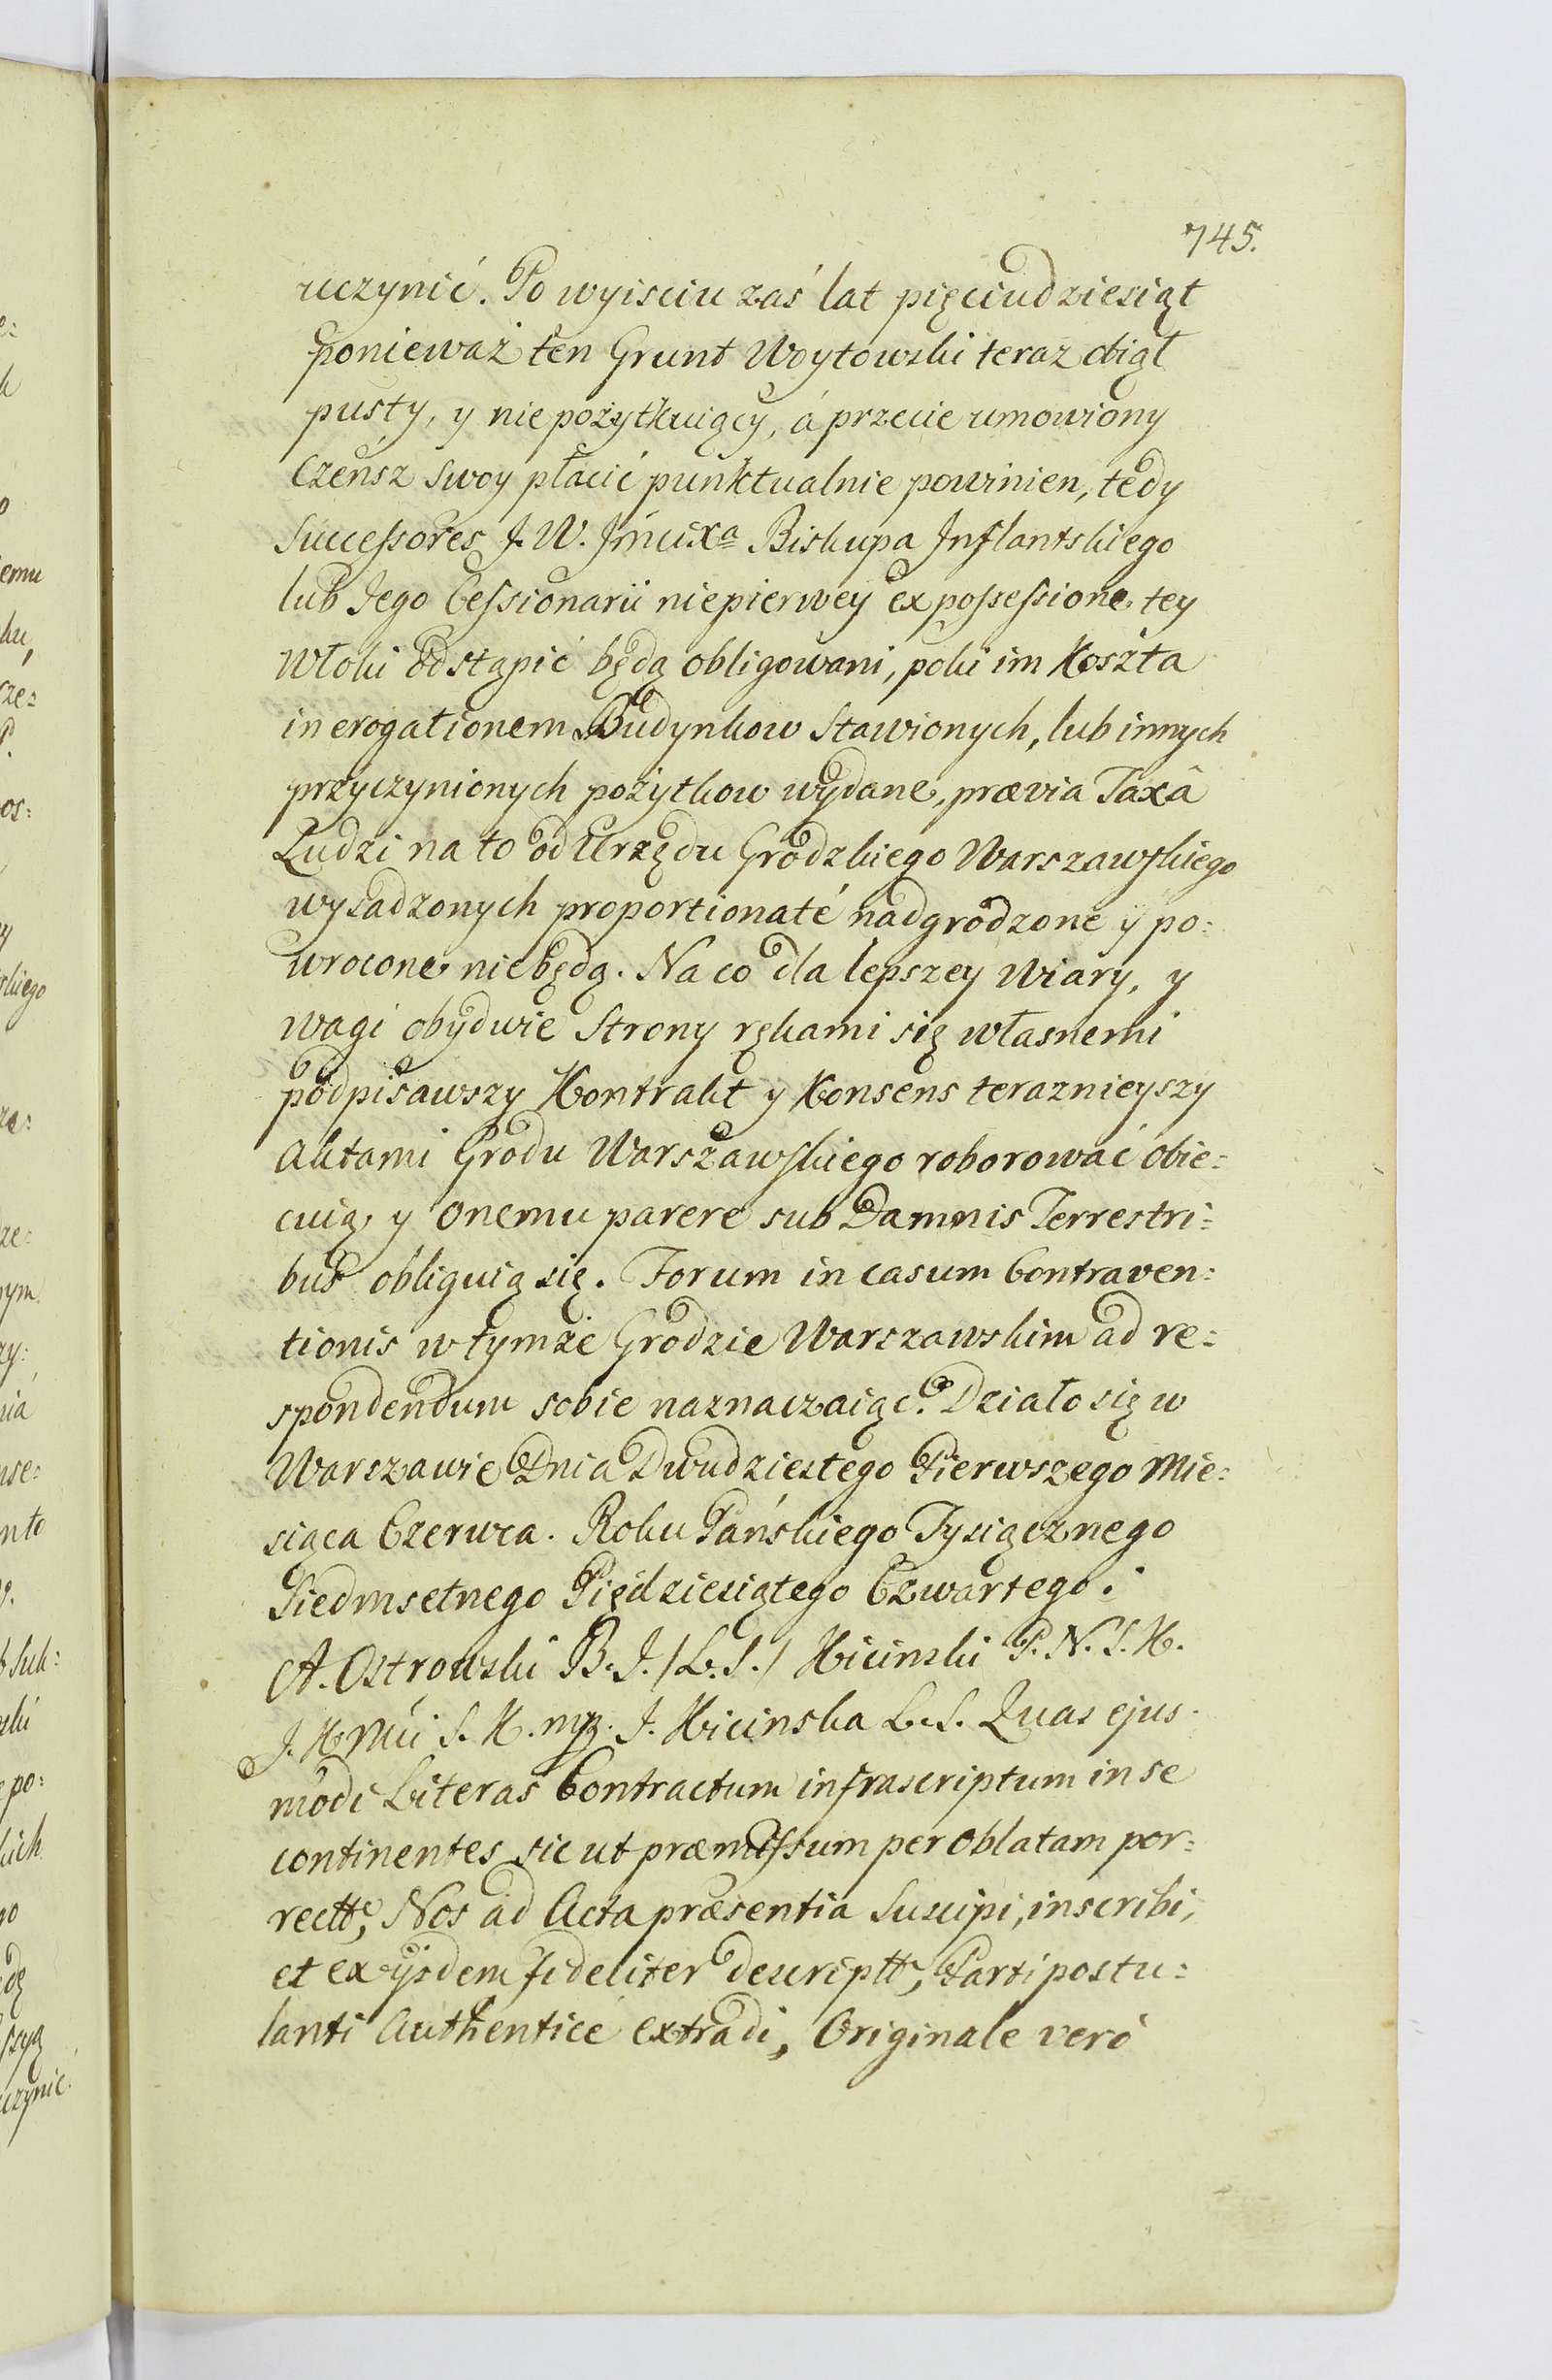 745.
uczynić. Po wyisciu zaś lat pięciudziesiąt
ponieważ ten Grunt Woytowski teraz obiął
pusty, y nie pożytkuiący, á przecie umowiony
Czensz swoy płacić punktualnie powinien, tedy
Successores J. W. Jmcixa Biskupa Inflantskiego
lub Jego Cessionarii niepierwey ex possessione tey
Włoki odstąpić będą obligowani, poki im Koszta
in erogationem Budynkow Stawionych, lub innych
przyczynionych pożytkow wydane, prævia Taxâ
Ludzi na to od Urzędu Grodzkiego Warszawskiego
wysadzonych proportionaté nadgrodzone ÿ po:
wrocone niebędą. Na co dla lepszey Wiary, y
wagi obydwie Strony rękami się własnemi
podpisawszy Kontrakt y Konsens teraznieyszy
Aktami Grodu Warszawskiego roborować obie:
cuią, y onemu parere sub Damnis Terrestri:
bus obliguią się. Forum in casum Contraven:
tionis w tymże Grodzie Warszawskim ad re:
spondendum sobie naznaczaiąc. Działo się w
Warszawie Dnia Dwudziestego Pierwszego Mie:
siąca Czerwca. Roku Pańskiego Tysiącznego
Siedmsetnego Piędziesiątego Czwartego.
A. Ostrowski B. J. /L. S./ Kicinski P. N. J. K.
J. K. mći S. K. mp. J. Kicinska L. S. Quas ejus:
modi Literas Contractum infrascriptum in se
continentes sic ut præmissum per Oblatam por:
rectt, Nos ad Acta præsentia Suscipi, inscribi,
et ex ijsdem fideliter descriptt, Parti postu:
lanti Authenticé extradi, Originale veró